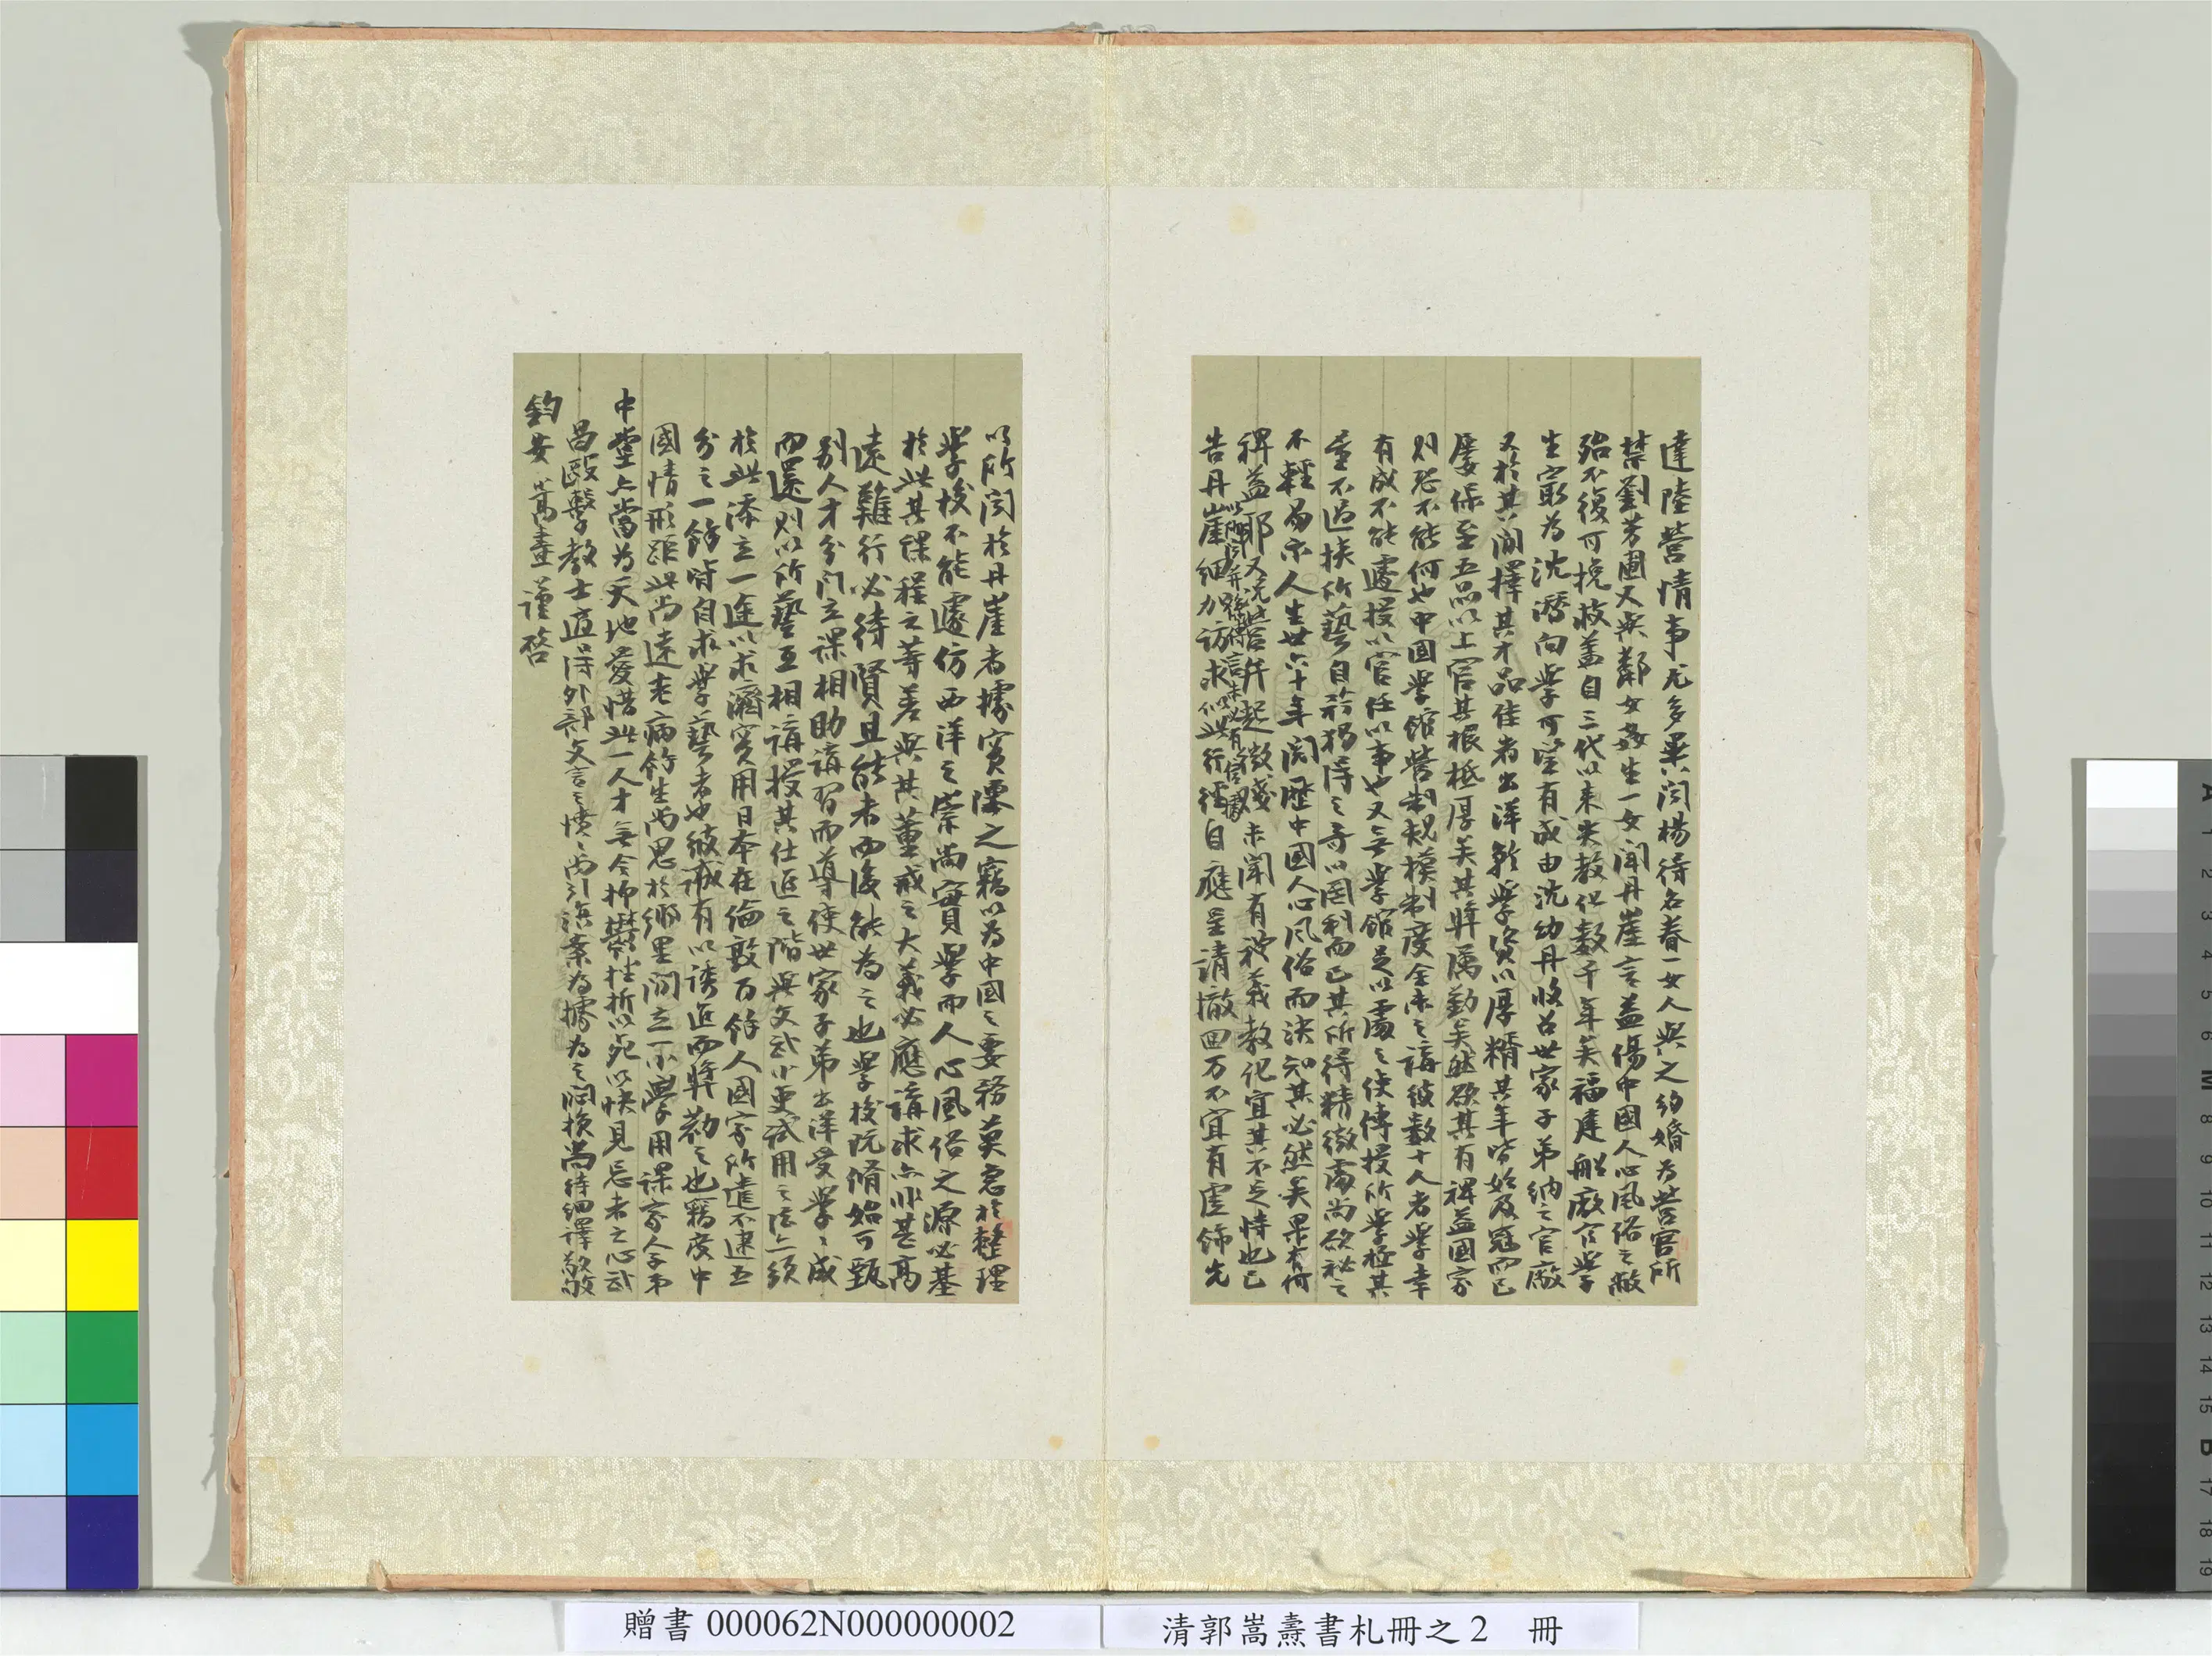 達陸營情事尤多異聞楊待名眷一女人與之約婚為營官所
禁劉芳圃又與鄰女姦生一女聞丹崖言益傷中國人心風俗之敝
殆不復可挽救蓋自三代以來失教化數千年矣福建船廠官學
生宣為沈潛向學可望有成由沈幼丹收召世家子弟納之官廠
又於其間擇其才品佳者出洋就學資以厚糈其年皆始及冠而已
屢保至五品以上官其根柢厚矣其獎厲勤矣然欲其有裨益國家
則恐不能何也中國學館營制規模制度全未之講彼數十人者學幸
有成不能遽授以官任以事也又無學館足以處之使傳授所學極其
量不過挾所藝自矜獨得之奇以罔利而已其所得精微處尚欲祕之
不輕易示人生世六十年閱歷中國人心風俗而決知其必然矣果有何
裨益耶又況營弁起微賤未聞有禮義教化宜其不足恃也已
告丹崖細加訪求似此行徑自應呈請撤回万不宜有虛飾先
以所聞於丹崖者據實陳之竊以為中國之要務莫急於整理
學校不能遽仿西洋之崇尚實學而人心風俗之源必基
於此其課程之等差與其董戒之大義必應講求亦非甚高
遠難行必待賢且能者而後能為之也學校既脩始可甄
別人才分門立課相助講習而導使世家子弟出洋受學學成
而還則以所藝互相講授其仕進之階與文武小更試用之法亦須
於此添立一途以求濟實用日本在倫敦百餘人國家所遣不逮五
分之一餘皆自求學藝者也彼誠有以誘進而獎勸之也竊度中
國情形距此尚遠老病餘生尚思於鄉里間立一小學用課家人子弟
中堂亦當為天地愛惜此一人才無令抑鬱挫折以死以快見忌者之心武
昌毆擊教士適得外部文言之憤憤尚引滇案為據為之悶損尚待細譯敬敂
鈞安 嵩燾謹啓
贈書 000062N000000002
清郭嵩燾書札冊之2 冊